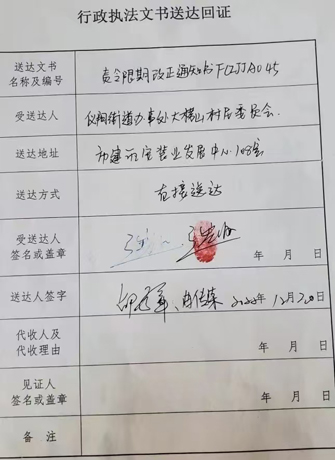 行政执法文书送达回证
送达文书
名称及编号
责令限期改正通知书FCZJJA045
受送达人
仪阳街道办事处大横山村居委员会
送达地址
市建 宝装业发展中心108室
送达方式
直接送达
受送达人
签名或盖章
年 月 日
送达人签字
年12月20日
代收人及
代收理由
年 月 日
见证人
签名或盖章
年 月 日
备 注